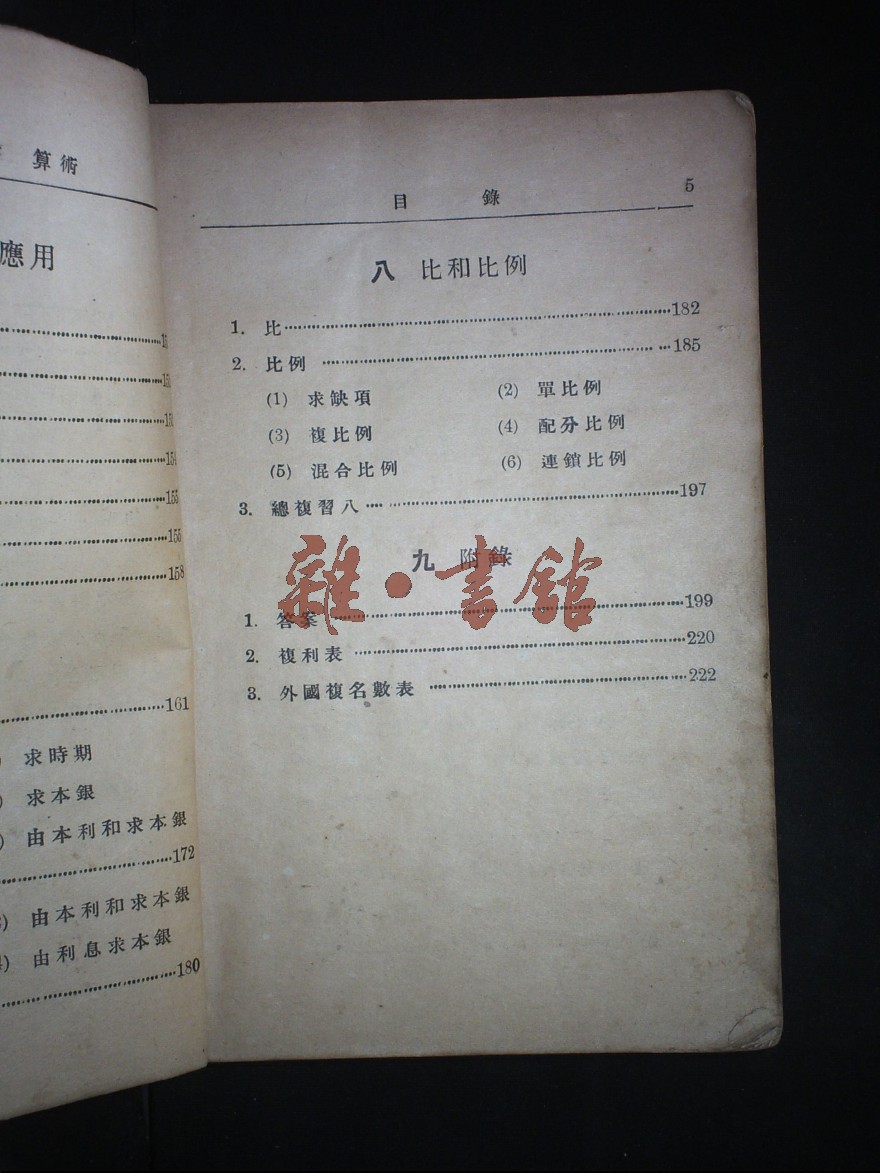 算術
應用
154
155
155
158
161
求時期
求本銀
由本利和求本銀
172
由本利和求本銀
由利息求本銀
180
目錄 5
八 比和比例
1. 比 182
2. 比例 185
(1) 求缺項 (2) 單比例
(3) 複比例 (4) 配分比例
(5) 混合比例 (6) 連鎖比例
3. 總複習八 197
九 附錄
雜·書館
1. 答案 199
2. 複利表 220
3. 外國複名數表 222